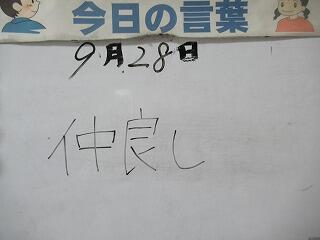 今日の言葉
9月28日
仲良し